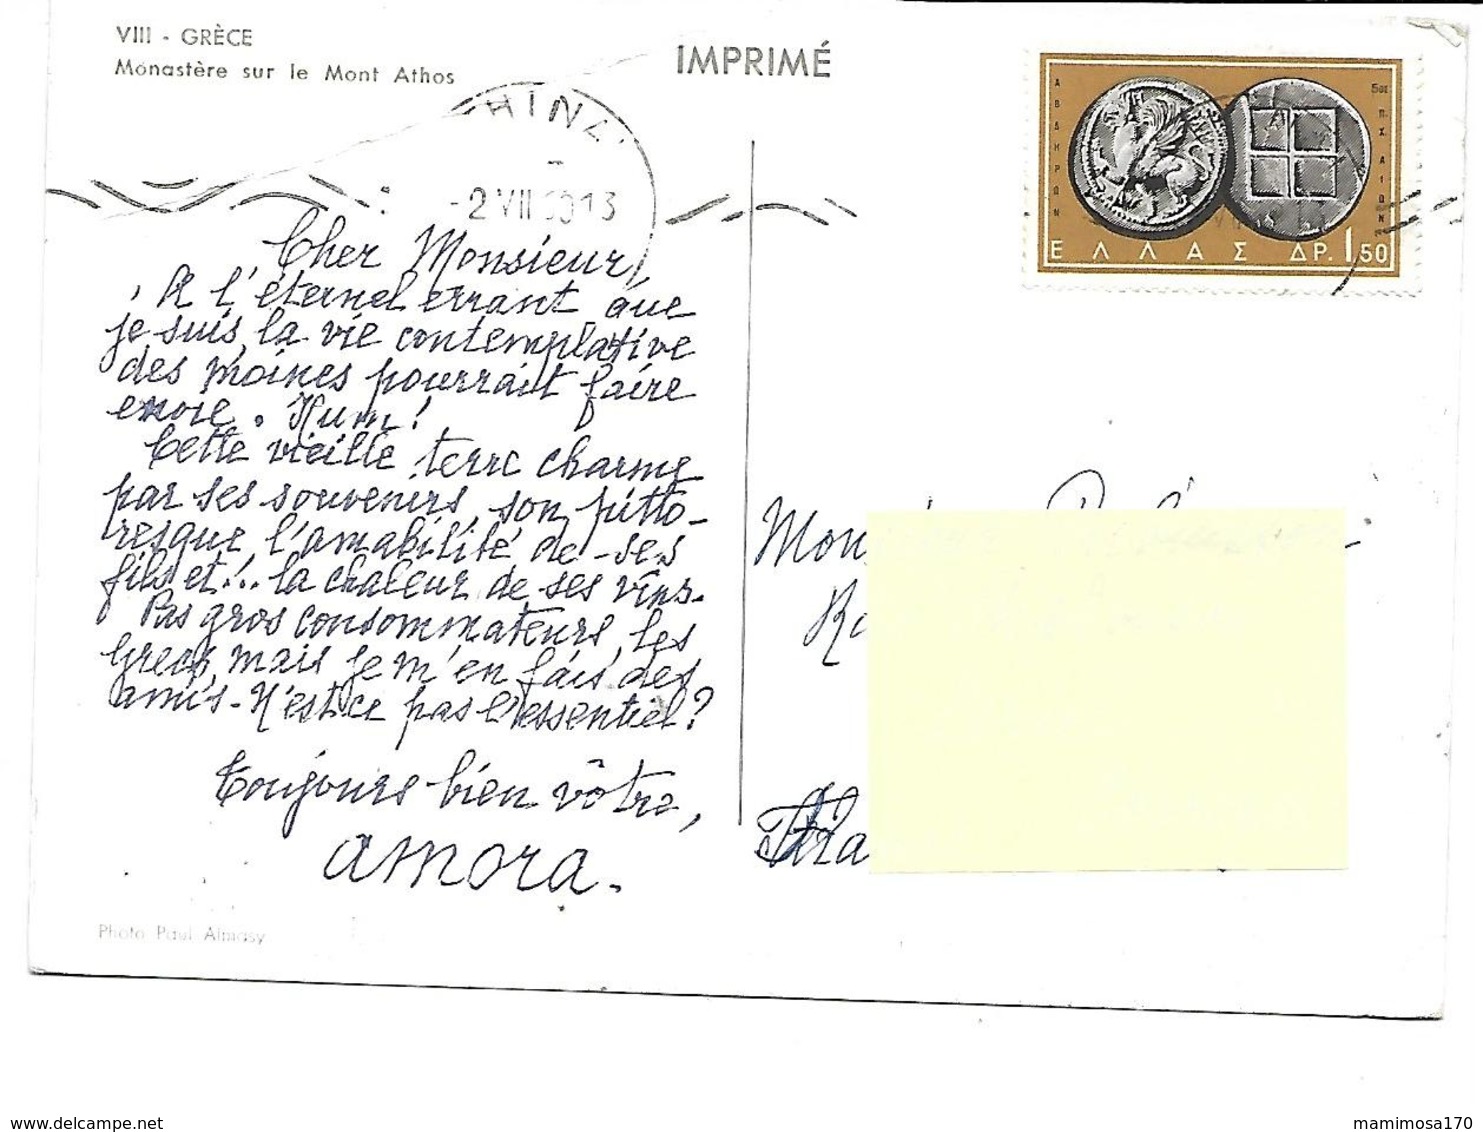 VIII - GRÈCE
Monastère sur le Mont Athos
IMPRIMÉ
HINA
-2 VII 60 13
ΑΒΔΗΡΩΝ
5ος π.Χ. ΑΙΩΝ
ΕΛΛΑΣ ΔΡ. 1,50
Cher Monsieur,
A l'éternel errant que
je suis, la vie contemplative
des moines pourrait faire
envie. Hum!
Cette vieille terre charme
par ses souvenirs, son pitto-
resque, l'amabilité de ses
fils et!.. la chaleur de ses vins.
Pas gros consommateurs, les
Grecs, mais je m'en fais des
amis - N'est-ce pas l'essentiel?
Toujours bien vôtre,
amora.
Mon
Ru
Fra
Photo Paul Almasy
delcampe.net
mamimosa170